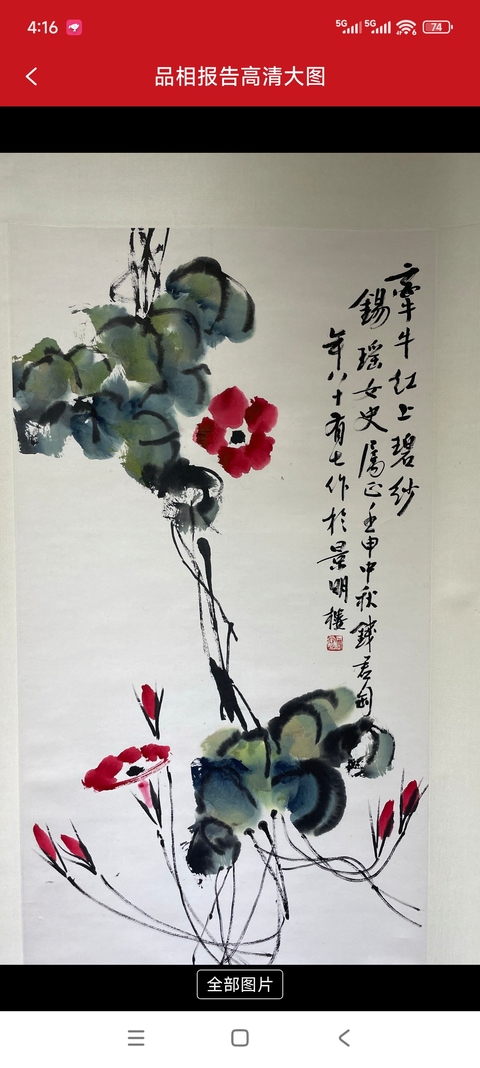 4:16
5G 5G 6 74
品相报告高清大图
牵牛红上碧纱
錫瑶女史属正壬申中秋錢君匋
年八十有七作於景明樓
全部图片